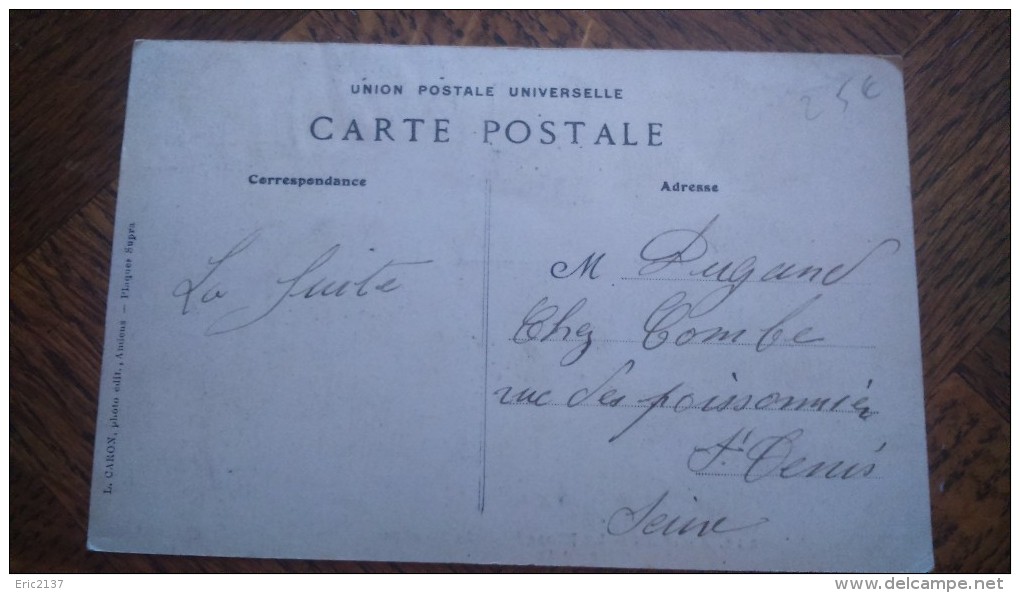 UNION POSTALE UNIVERSELLE
CARTE POSTALE
25€
Correspondance
Adresse
La Suite
M Dugand
Chez Combe
rue des poissonnier
St Denis
Seine
L. CARON, photo édit., Amiens — Plaques Supra
Eric2137
www.delcampe.net